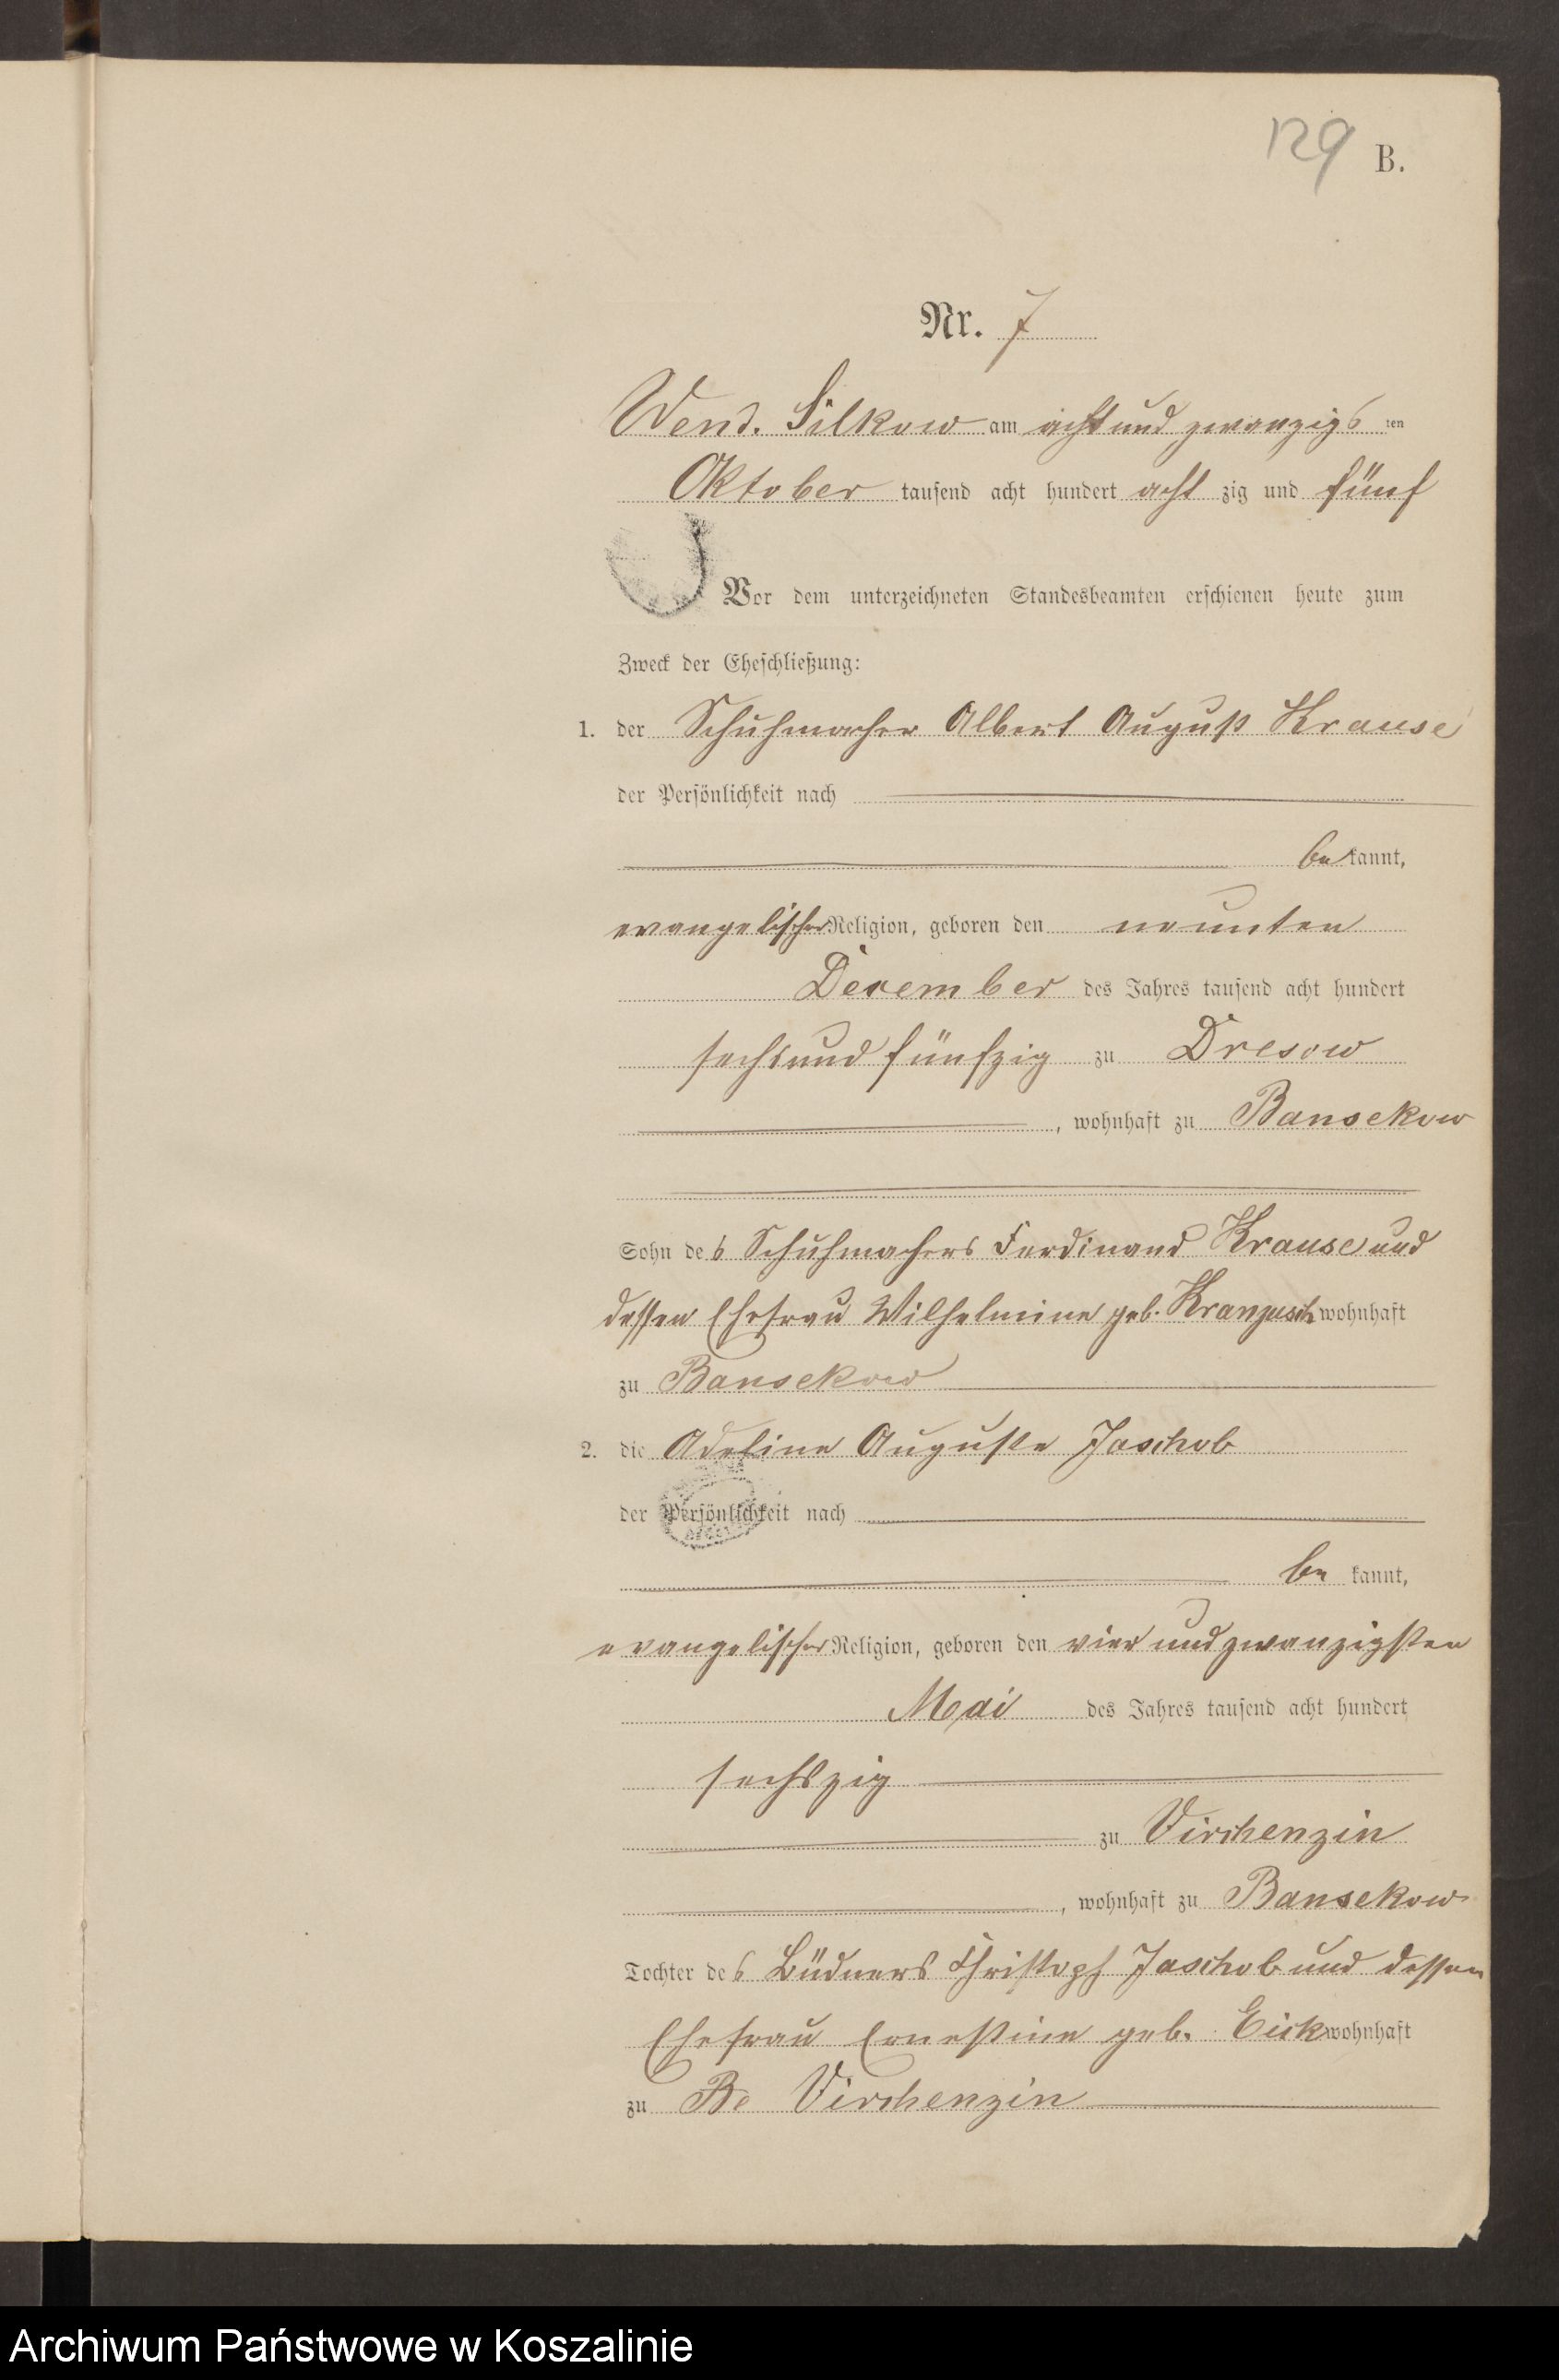 129 B.
Nr. 7
Wend. Silkow am acht und zwanzigs ten
Oktober tausend acht hundert acht zig und fünf
Vor dem unterzeichneten Standesbeamten erschienen heute zum
Zweck der Eheschließung:
1. der Schuhmacher Albert August Krause
der Persönlichkeit nach
be kannt,
evangelischer Religion, geboren den neunten
Dezember des Jahres tausend acht hundert
sechs und fünfzig zu Dresow
, wohnhaft zu Bansekow
Sohn des Schuhmachers Ferdinand Krause und
dessen Ehefrau Wilhelmine geb. Kranzusch wohnhaft
zu Bansekow
2. die Adeline Auguste Jaschob
der Persönlichkeit nach
be kannt,
evangelischer Religion, geboren den vier und zwanzigsten
Mai des Jahres tausend acht hundert
sechszig
zu Virchenzin
, wohnhaft zu Bansekow
Tochter des Büdners Christoph Jaschob und dessen
Ehefrau Ernestine geb. Eick wohnhaft
zu Be Virchenzin
Archiwum Państwowe w Koszalinie